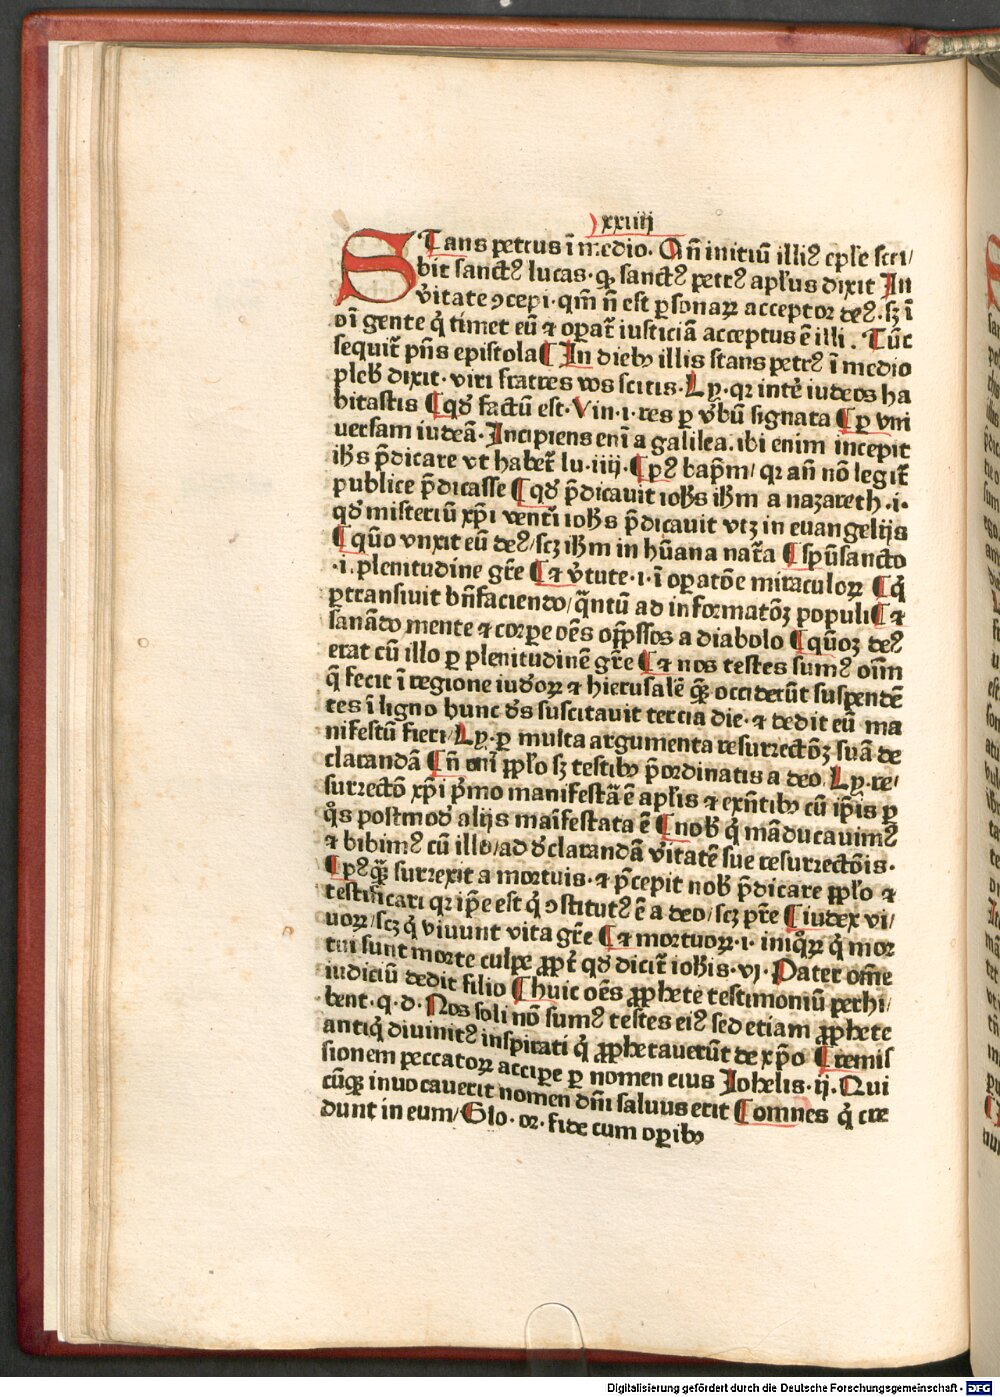 xxiiij
STans petrus ī medio. An̄ initiū illiꝰ eple scri/
bit sanctꝰ lucas. ꝙ sanctꝰ petrꝰ apl̓us dixit In
v̓itate ꝯcepi. qm̄ n̄ est ꝑsonaꝝ acceptor deꝰ. sꝫ ī
oī gente q̇ timet eū ⁊ oꝑat᷑ iusticiā acceptus ē illi. Tūc
sequit᷑ pn̄s epistola ¶ In dieb⁹ illis stans petrꝰ ī medio
pleb̓ dixit. viri fratres vos scitis. Ly. qꝛ int̓ iudeos ha
bitastis ¶ qd̓ factū est. Vm. i. res ꝑ v̓bū signata ¶ ꝑ vni
uersam iudeā. Incipiens eni a galilea. ibi enim incepit
ih̓s p̄dicare vt habet᷑ lu. iiij. ¶ pꝰ bapm̄/ qꝛ an̄ nō legit᷑
publice p̄dicasse ¶ qd̓ p̄dicavit ioh̓s ih̓m a nazareth. i.
qd̓ misteriū xp̄i venti ioh̓s p̄dicavit vtꝫ in euangelijs
¶ quō vnxit eū deꝰ/ scꝫ ih̓m in hūana nat᷑a ¶ spūsancto
.i. plenitudine gr̄e ¶ ⁊ v̓tute. i. ī oꝑatōe miraculoꝝ ¶ q̇
ꝑtransiuit bn̄faciendo/ q̄ntū ad informatōꝫ populi ¶ ⁊
sanādo mente ⁊ corꝑe oēs opp̄ssos a diabolo ¶ qm̄ deꝰ
erat cū illo ꝑ plenitudinē gr̄e ¶ ⁊ nos testes sumꝰ oīm
q̄ fecit ī regione iud̓oꝝ ⁊ hierusalē quē occiderūt suspendē
tes ī ligno hunc d̓s suscitauit tercia die. ⁊ dedit eū ma
nifestū fieri/ Ly. ꝑ multa argumenta resurrectōꝫ suā de
clarandā ¶ n̄ oni pp̄lo sꝫ testib⁹ p̄ordinatis a deo. Ly. re/
surrectō xp̄i p̓mo manifestā ē apl̓is ⁊ exn̄tib⁹ cū ip̄is ꝑ
q̇s postmod̓ alijs maīfestata ē ¶ nob̓ q̇ māducauimꝰ
⁊ bibimꝰ cū illo/ ad d̓clarandā v̓itatē sue resurrectōis.
¶ pꝰquā surrexit a mortuis. ⁊ p̄cepit nob̓ p̄dicare pp̄lo ⁊
testificari qꝛ ip̄e est q̇ ꝯstitutꝰ ē a deo/ scꝫ pr̄e ¶ iudex vi/
uoꝝ/ scꝫ q̇ viuunt vita gr̄e ¶ ⁊ mortuoꝝ. i. iniqꝝ q̇ mor
tui sunt morte culpe ꝓpt᷑ qd̓ dicit᷑ ioh̓is. vj. Pater om̄e
iudiciū dedit filio ¶ huic oēs ꝓphete testimoniū perhi/
bent. q. d. Nos soli nō sumꝰ testes eiꝰ sed etiam ꝓphete
antiq̇ diuinitꝰ inspirati q̇ ꝓphetauerūt de xp̄o ¶ remis
sionem peccatoꝝ accipe ꝑ nomen eius Johelis. ij. Qui
cūqꝫ inuocauerit nomen dn̄i saluus erit ¶ omnes q̇ cre
dunt in eum/ Glo. or. fide cum oꝑib⁹
Digitalisierung gefördert durch die Deutsche Forschungsgemeinschaft - DFG